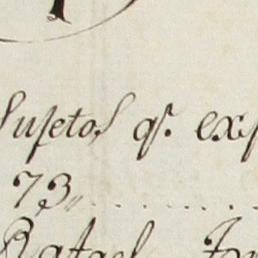 Sujetos qe. exp
73
Rafael